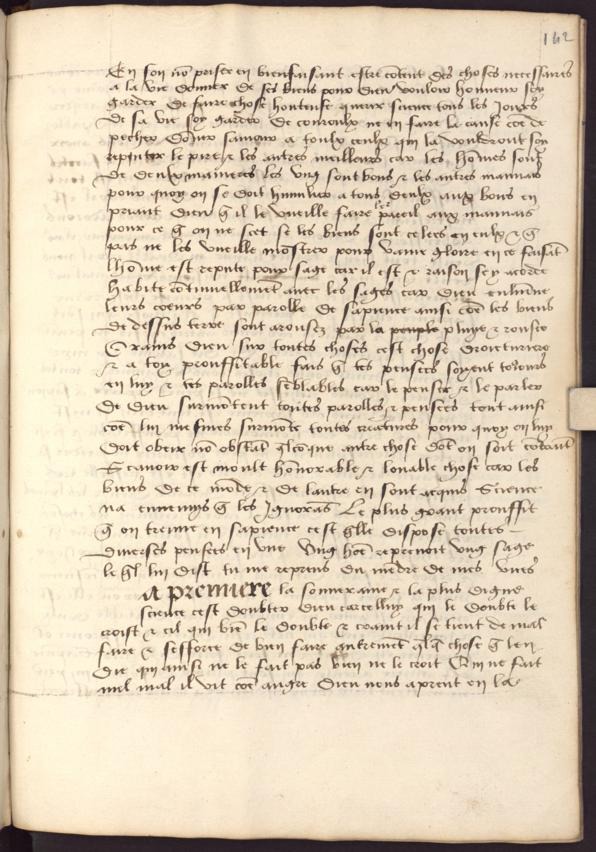 142
En son nō priser en bienfaisant estre cōtent des choses necessaires
a la vie donner de ses biens pour dieu vouloir honneur soy
garder de faire chose honteuse querir science tous les Jours
de sa vie soy garder de couroulx ne en faire la cause cōe de
pechez dōner saueur a toulx ceulx qui la vouldront son
reputer le pire & les autres meilleurs car les hōmes sont
de deulx manieres les vng sont bons & les autres mauuais
pour quoy on se doit humilier a tous deulx aux bons en
priant dieu q̄ il le vueille faire pareil aux mauuais
pour ce q̄ on ne scet se les biens sont celees en eulx & q̄
pas ne les vueille mōstrer pour vaine gloire en ce faisāt
lhōme est repute pour sage car il est & raison sey acorde
habite cōtinuellemēt auec les sages car dieu enlumine
leurs coeurs par parolle de sapience ainsi cōe les biens
de dessus terre sont arousez par la peuple pluye & rousee
Crains dieu sur toutes choses cest chose droicturiere
& a toy prouffitable fais q̄ tes pensees soyent tousiours
en luy & tes parolles sēblables car le penser & le parler
de dieu surmōtent toutes parolles & pensees tout ainsi
cōe lui mesmes surmōte toutes creatures pour quoy en luy
doit obeir nō obstāt q̄lcōque autre chose dōt on soit cōtraint
Scauoir est moult honnorable & louable chose car les
biens de ce mōde & de lautre en sont acquis Science
na ennemys q̄ les Ignorās Le plus grant prouffit
q̄ on treuue en sapience cest q̄lle dispose toutes
diuerses pensees en vne Vng hōe reprenoit vng sage
le q̄l lui dist tu me reprens du mēdre de mes vices
a premiere la souueraine & la plus digne
science cest doubter dieu car celluy qui le doubte le
croist & cil qui biē le doubte & craint il se tient de mal
faire & sefforce de bien faire autremēt q̄lq̄ chose q̄ len
die qui ainsi ne le fait pas bien ne le croit Qui ne fait
nul mal il vit cōe angre dieu nous aprent en la